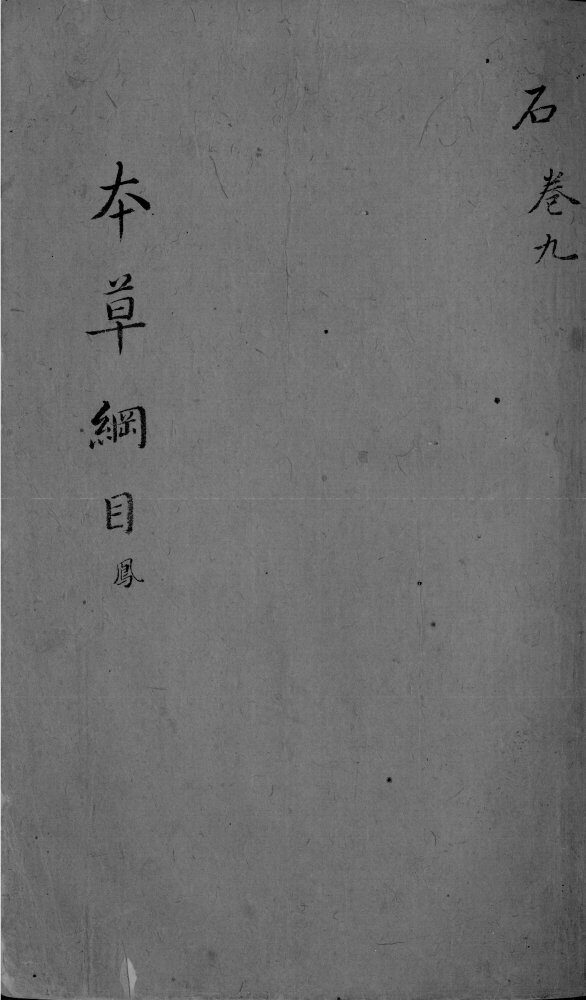 石 卷九
本草綱目 鳳